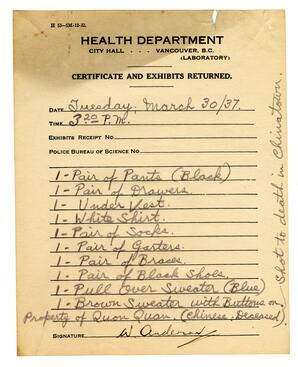 HEALTH DEPARTMENT
CITY HALL . . . VANCOUVER, B.C.
(LABORATORY)
CERTIFICATE AND EXHIBITS RETURNED.
DATE Tuesday, March 30/37.
TIME 3 20 P.M.
EXHIBITS RECEIPT NO
POLICE BUREAU OF SCIENCE NO
1 - Pair of Pants (Black)
1 - Pair of Drawers.
1 - Under Vest.
1 - White Shirt.
1 - Pair of Socks.
1 - Pair of Garters.
1 - Pair of Braces.
1 - Pair of Black Shoes.
1 - Pull Over Sweater (Blue)
1 - Brown Sweater with Buttons on
Property of Quon Quan. (Chinese, Deceased)
SIGNATURE W. Anderson
Shot to death in Chinatown.